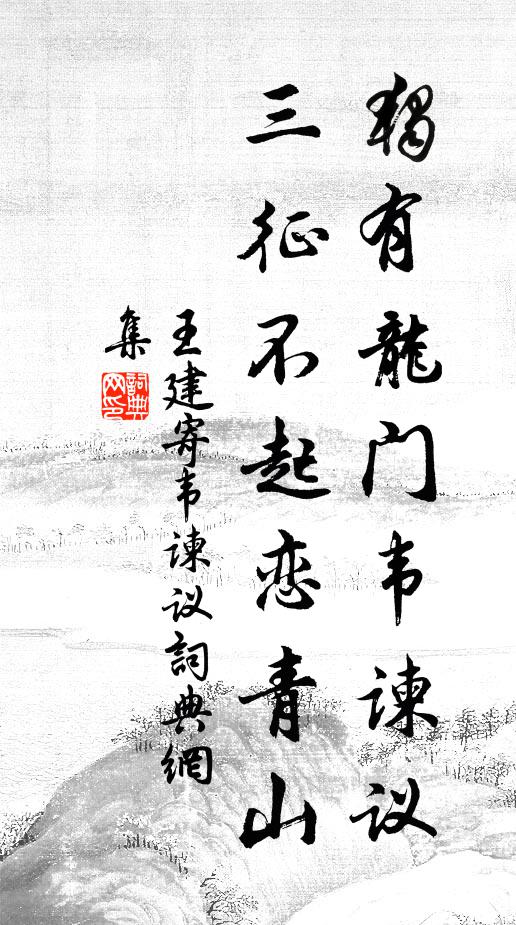 獨有龍门韦谏议
三征不起恋青山
王建寄韦谏议詞典網
集
詞典网印